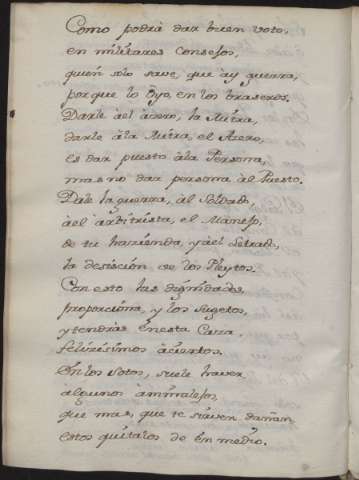 Como podrà dar buen voto,
en militares consejos,
quien solo save, que ay guerra,
porque lo oyo, en los braseros.
Darle àel àzero, la Mitra,
darle àla Mitra, el Azero,
es dar puesto àla Persona,
mas no dar persona al Puesto.
Dale la guerra, al Soldado,
àel arbitrista, el Manejo,
de tu hazienda, y àel Letrado,
la desision de los Pleytos.
Con esto las dignidades,
proporciona, y los sugetos,
y tendràs en esta Caza,
felizisimos àciertos.
En los votos, suele haver
algunos ànimalejos,
que mas, que te sirven dañan,
estos quitalos de en medio.